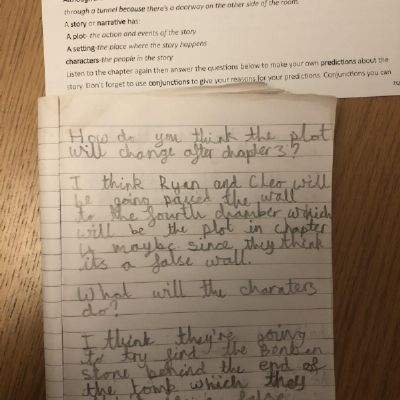 through a tunnel because there's a doorway on the other side of the room.
A story or narrative has:
A plot- the action and events of the story
A setting-the place where the story happens
characters-the people in the story
Listen to the chapter again then answer the questions below to make your own predictions about the
story. Don't forget to use conjunctions to give your reasons for your predictions. Conjunctions you can
How do you think the plot
will change after chapter 3?
I think Ryan and Cleo will
be going passed the wall
to the fourth chamber which
will be the plot in chapter
4 maybe since they think
its a false wall.
What will the charaters
do?
I think they're going
to try find the Benben
stone behind the end of
the tomb which they
false